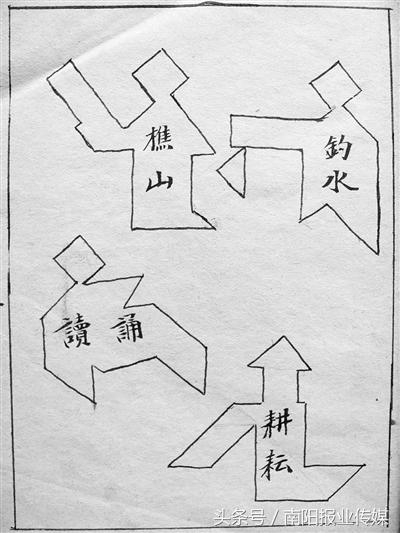 樵
山
釣
水
讀 誦
耕
耘
头条号 / 南阳报业传媒